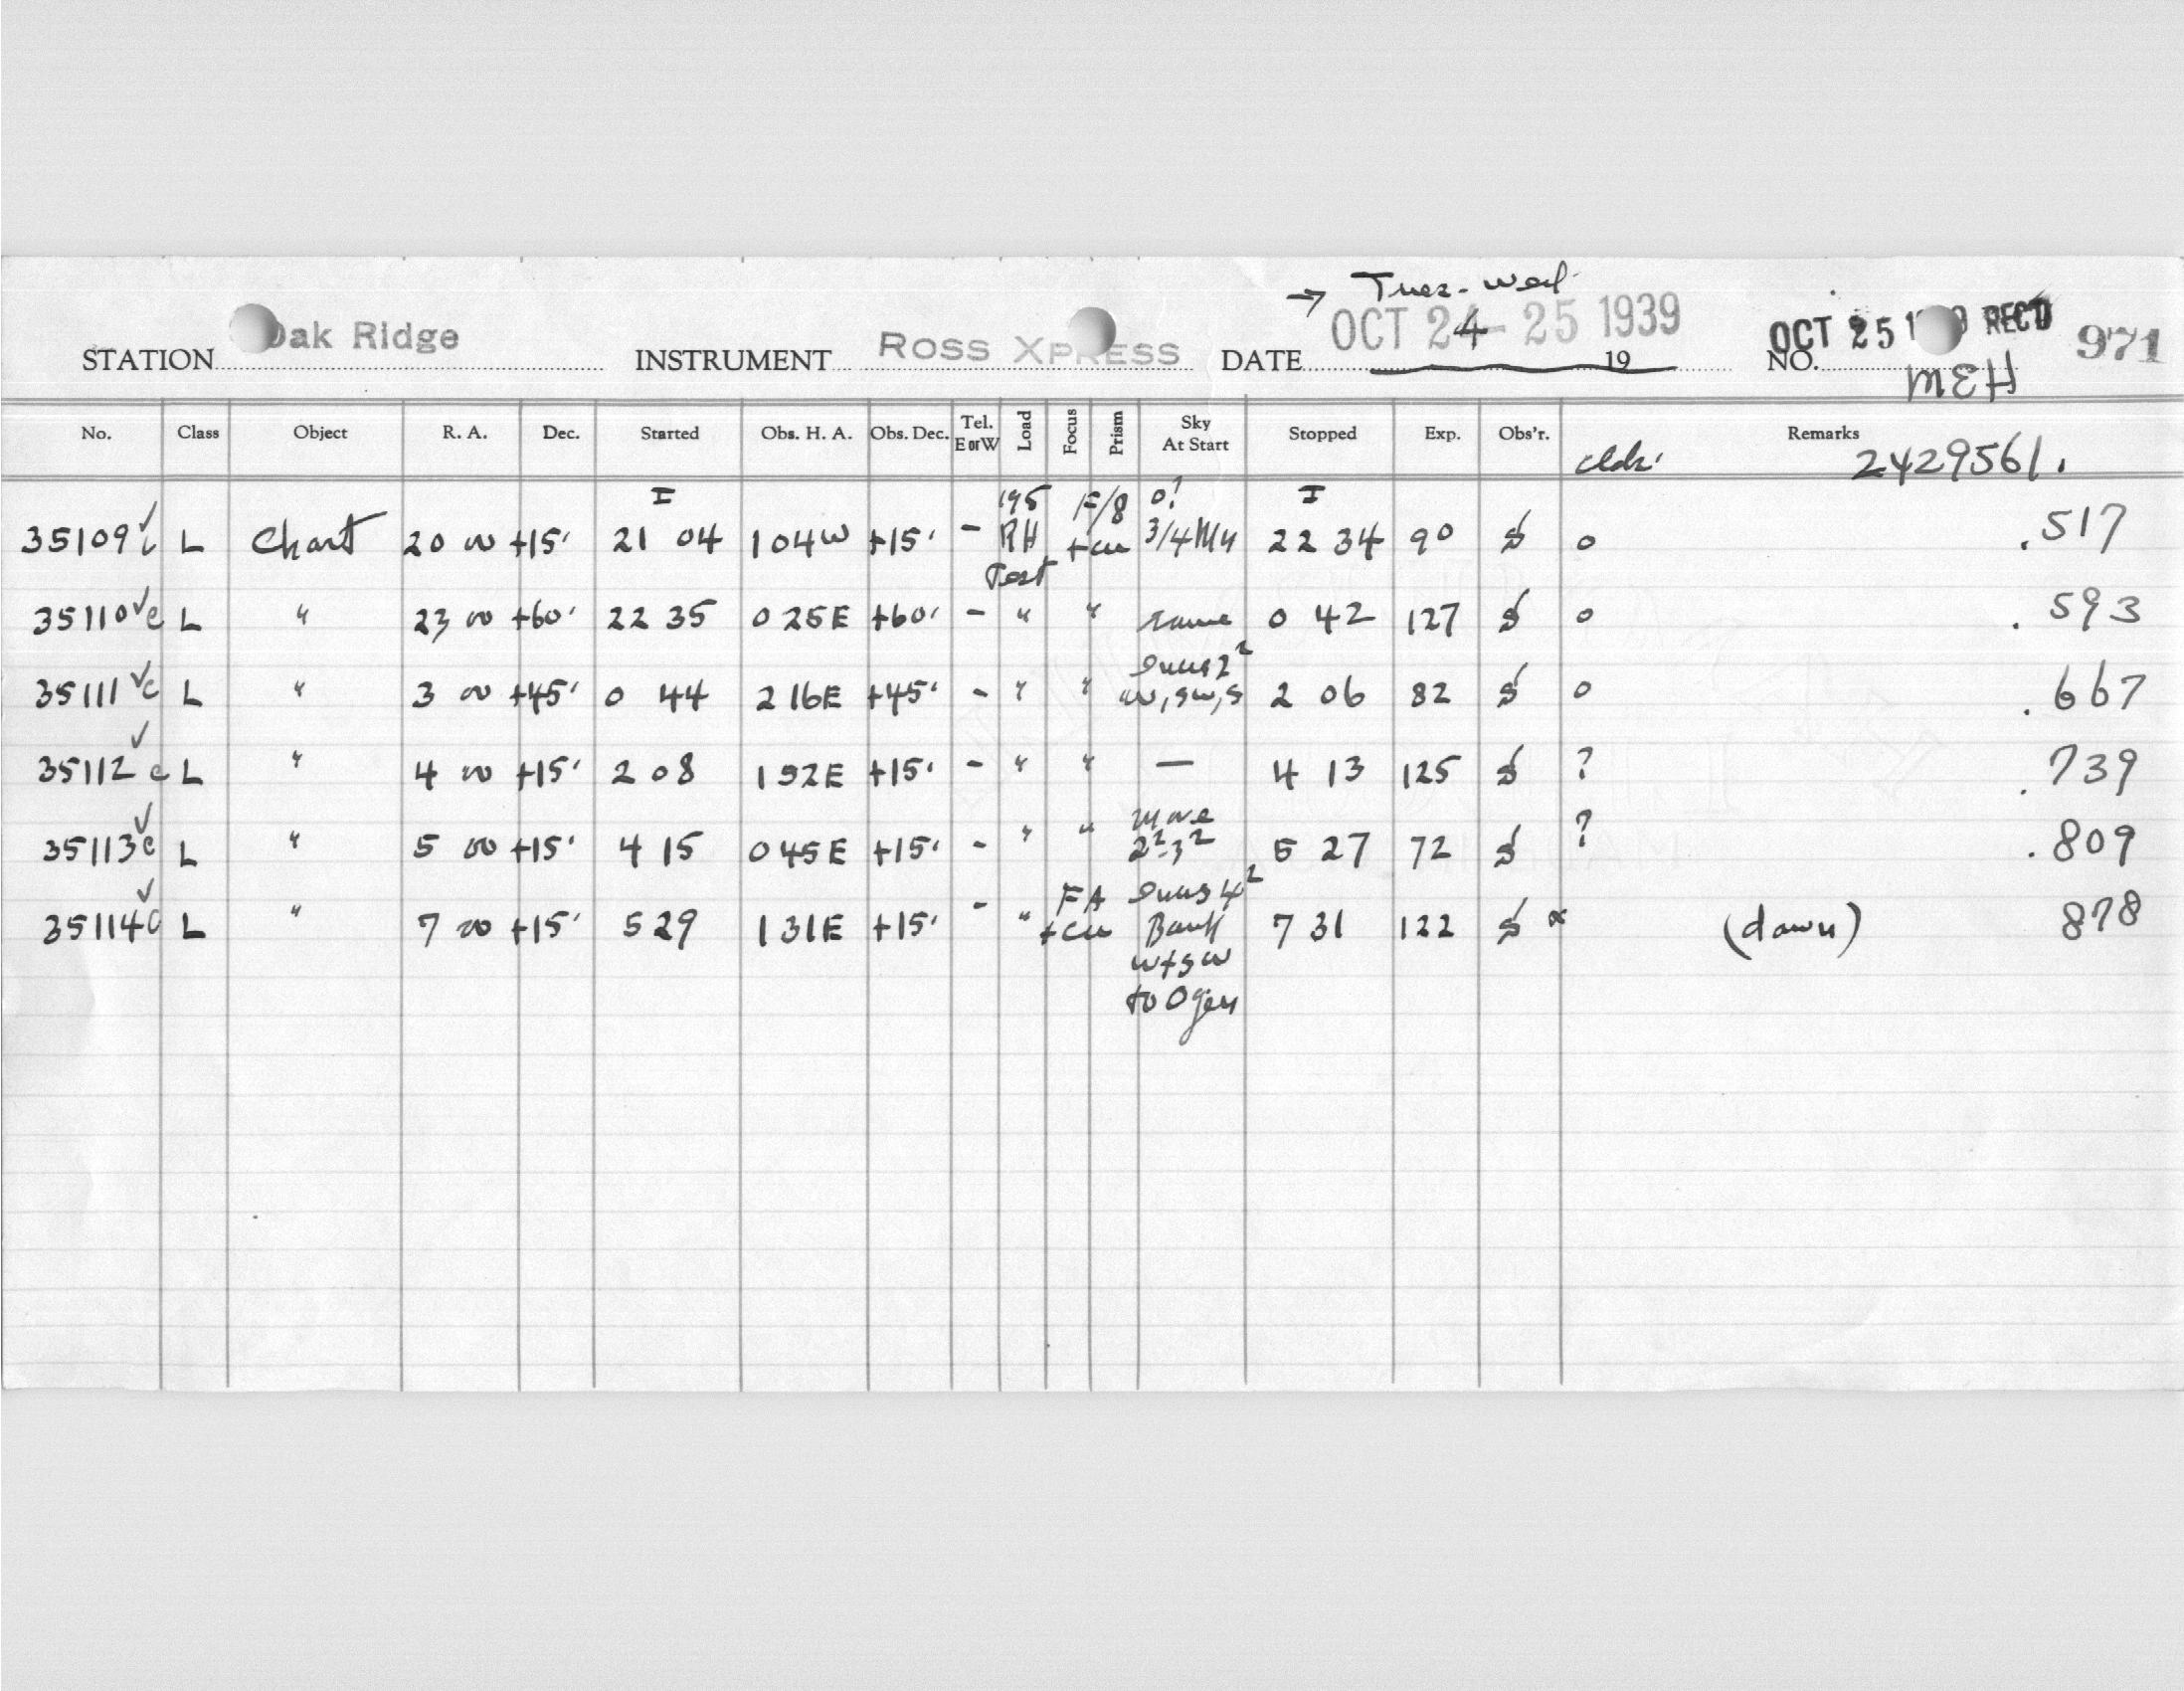 → Tues - Wed
STATION Oak Ridge INSTRUMENT ROSS XPRESS DATE OCT 24 - 25 1939 19 NO. OCT 25 1939 REC'D 971
MEH
No. Class Object R. A. Dec. Started Obs. H. A. Obs. Dec. Tel. E or W Load Focus Prism Sky At Start Stopped Exp. Obs'r. Remarks
2429561.
I 195 F/8 0! I
35109 ✓ L Chart 20 00 +15° 21 04 1 04 W +15° - RH +cu 3/4 Mn 22 34 90 S 0 .517
Test
35110 ✓ c L " 23 00 +60° 22 35 0 25 E +60° - " " same 0 42 127 S 0 .593
2²
35111 ✓ c L " 3 00 +45° 0 44 2 16 E +45° - " " W, SW, S 2 06 82 S 0 .667
35112 ✓ c L " 4 00 +15° 2 08 1 52 E +15° - " " — 4 13 125 S ? .739
more
35113 ✓ c L " 5 00 +15° 4 15 0 45 E +15° - " " 2²-3² 5 27 72 S ? .809
FA 4²
35114 ✓ c L " 7 00 +15° 5 29 1 31 E +15° - " +cu Bank 7 31 122 S x (dawn) 878
W + SW
to 0 gen